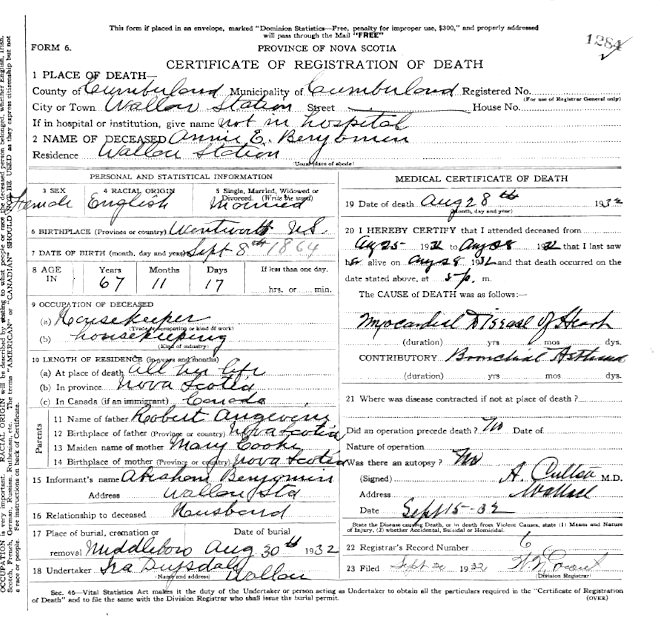 This form if placed in an envelope, marked "Dominion Statistics—Free, penalty for improper use, $300," and properly addressed
will pass through the Mail "FREE"
1284
FORM 6.
PROVINCE OF NOVA SCOTIA
CERTIFICATE OF REGISTRATION OF DEATH
1 PLACE OF DEATH—
County of Cumberland Municipality of Cumberland Registered No.
(For use of Registrar General only)
City or Town Wallace Station Street House No.
If in hospital or institution, give name not in hospital
2 NAME OF DECEASED Annie E. Benjamin
Residence Wallace Station
(Usual place of abode)
PERSONAL AND STATISTICAL INFORMATION
3 SEX 4 RACIAL ORIGIN 5 Single, Married, Widowed or
Divorced. (Write the word)
Female English Married
6 BIRTHPLACE (Province or country) Wentworth N.S.
7 DATE OF BIRTH (month, day and year) Sept 8th 1864
8 AGE IN Years Months Days If less than one day.
67 11 17 hrs. or min.
9 OCCUPATION OF DECEASED
(a) Housekeeper
(Trade, occupation or kind of work)
(b) housekeeping
(Kind of industry)
10 LENGTH OF RESIDENCE (in years and months)
(a) At place of death All her life
(b) In province Nova Scotia
(c) In Canada (if an immigrant) Canada
Parents
11 Name of father Robert Angevine
12 Birthplace of father (Province or country) Nova Scotia
13 Maiden name of mother Mary Cooke
14 Birthplace of mother (Province or country) Nova Scotia
15 Informant's name Abraham Benjamin
Address Wallace Sta
16 Relationship to deceased Husband
17 Place of burial, cremation or Date of burial
removal Middleboro Aug 30th 1932
18 Undertaker Ira Wallace
Name and address
MEDICAL CERTIFICATE OF DEATH
19 Date of death Aug 28th 1932
(month, day and year)
20 I HEREBY CERTIFY that I attended deceased from
Aug 25 1932 to Aug 28 1932 that I last saw
her alive on Aug 28 1932 and that death occurred on the
date stated above, at 5 p. m.
The CAUSE of DEATH was as follows:—
Myocardial Disease of Heart
(duration) yrs. mos dys.
CONTRIBUTORY Bronchial Asthma
(duration) yrs. mos. dys.
21 Where was disease contracted if not at place of death?
Did an operation precede death? No Date of
Nature of operation
Was there an autopsy? No
(Signed) A. M.D.
Address Wallace
Date Sept 15-32
State the Disease causing Death, or in death from Violent Causes, state (1) Means and Nature
of Injury, (2) whether Accidental, Suicidal or Homicidal.
22 Registrar's Record Number 6
23 Filed Sept 1932
(Division Registrar)
Sec. 46—Vital Statistics Act makes it the duty of the Undertaker or person acting as Undertaker to obtain all the particulars required in the "Certificate of Registration
of Death" and to file the same with the Division Registrar who shall issue the burial permit.
(OVER)